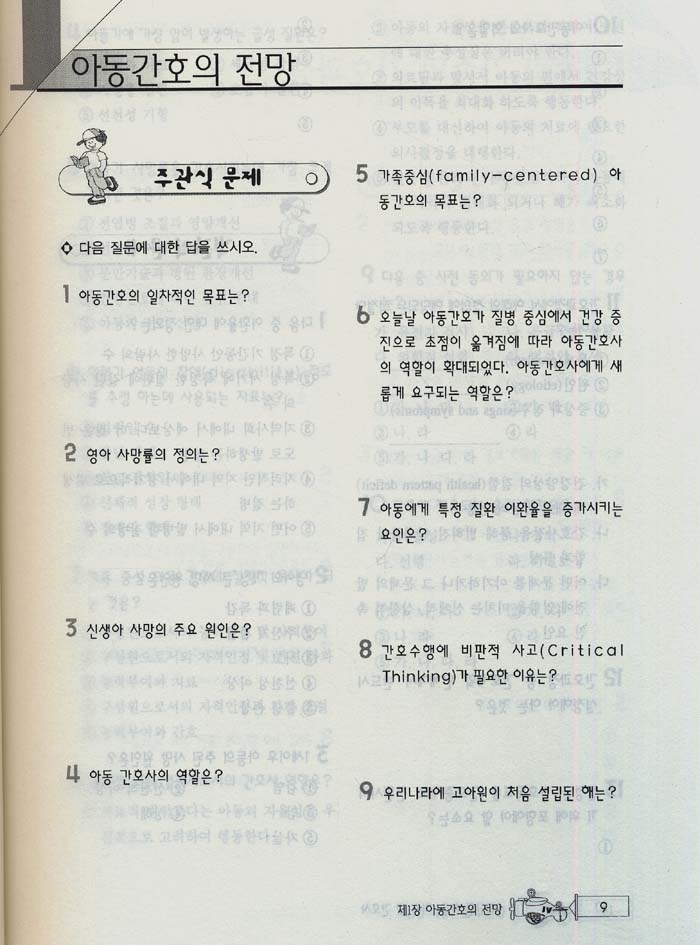 1
아동간호의 전망
주관식 문제
◇ 다음 질문에 대한 답을 쓰시오.
1 아동간호의 일차적인 목표는?
2 영아 사망률의 정의는?
3 신생아 사망의 주요 원인은?
4 아동 간호사의 역할은?
5 가족중심(family-centered) 아
동간호의 목표는?
6 오늘날 아동간호가 질병 중심에서 건강 증
진으로 초점이 옮겨짐에 따라 아동간호사
의 역할이 확대되었다. 아동간호사에게 새
롭게 요구되는 역할은?
7 아동에게 특정 질환 이환율을 증가시키는
요인은?
8 간호수행에 비판적 사고(Critical
Thinking)가 필요한 이유는?
9 우리나라에 고아원이 처음 설립된 해는?
제1장 아동간호의 전망 9